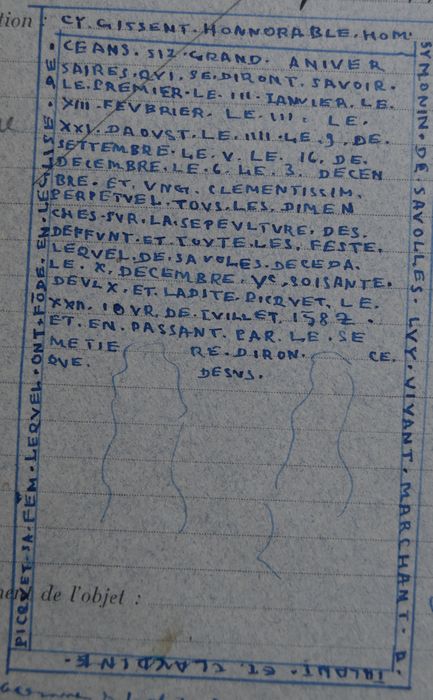 tion :
CY. GISSENT. HONNORABLE. HOM.
SYMONIN. DE SAVOLLES. LVY. VIVANT. MARCHANT. D.
TALANT. ET. CLAVDINE.
PICQVET. SA. FEM. LEQVEL. ONT. FŌDE. EN. LEGLISE. DE.
CEANS. SIZ. GRAND. ANIVER
SAIRES. QVI. SE. DIRONT. SAVOIR.
LE. PREMIER. LE. III. IANVIER. LE.
XIII. FEVBRIER. LE. III. LE.
XXI. DAOVST. LE. IIII. LE. 9. DE.
SETTEMBRE. LE. V. LE. 16. DE.
DECEMBRE. LE. 6. LE. 3. DECEN
BRE. ET. VNG. CLEMENTISSIM.
PERPETVEL. TOVS. LES. DIMEN
CHES. SVR. LA. SEPEVLTVRE. DES.
DEFFVNT. ET. TOVTE. LES. FESTE.
LEQVEL. DE. SAVOLES. DECEDA.
LE. X. DECEMBRE. Vc. SOISANTE.
DEVLX. ET. LADITE. PICQVET. LE.
XXII. IOVR. DE. IVILLET. 1582.
ET. EN. PASSANT. PAR. LE. SE
METIE RE. DIRON. CE.
QVE. DESVS.
ment de l'objet :